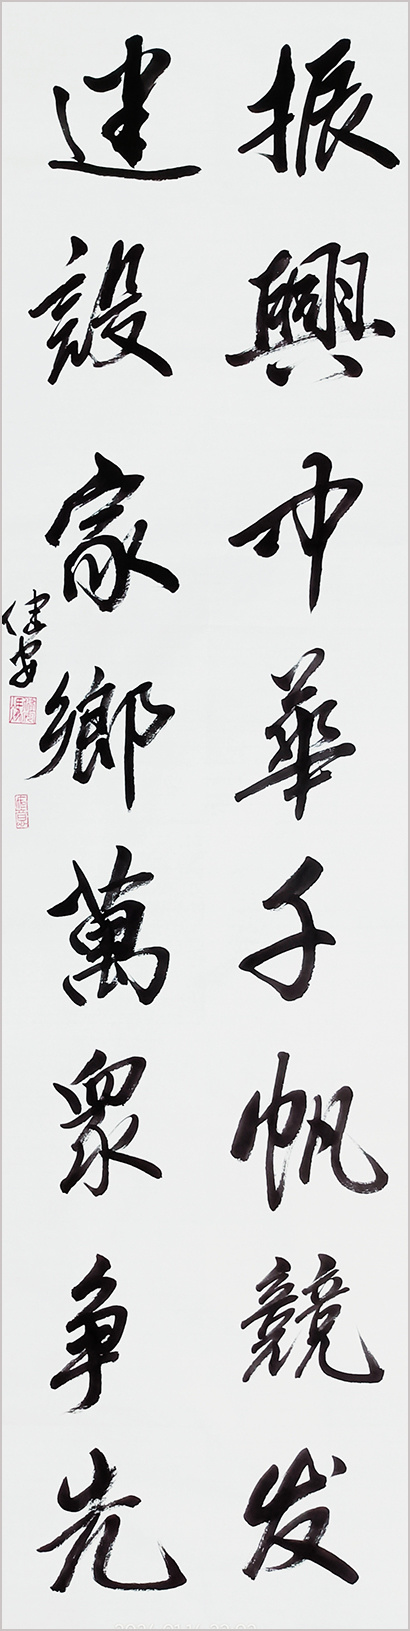 振興中華千帆競发
建設家鄉萬衆争先
健安